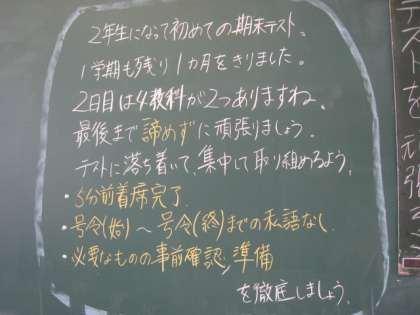 2年生になって初めての期末テスト。
1学期も残り1カ月をきりました。
2日目は4教科が2つありますね、
最後まで諦めずに頑張りましょう。
テストに落ち着いて、集中して取り組めるよう、
・5分前着席完了
・号令(始)〜号令(終)までの私語なし
・必要なものの事前確認、準備
を徹底しましょう。
テストを頑張